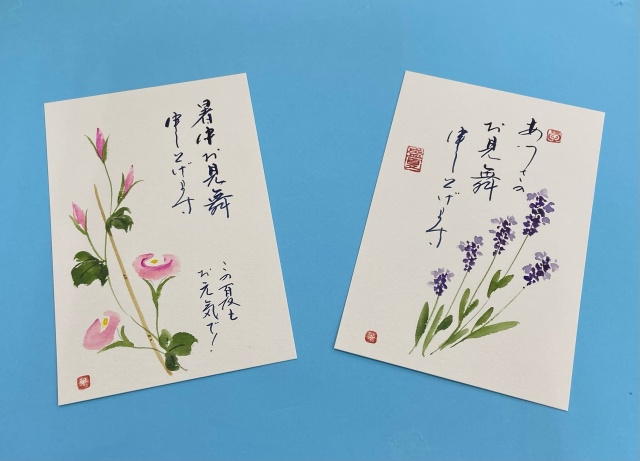 暑中お見舞
申し上げます
この夏も
お元気で!
あつさの
お見舞
申し上げます